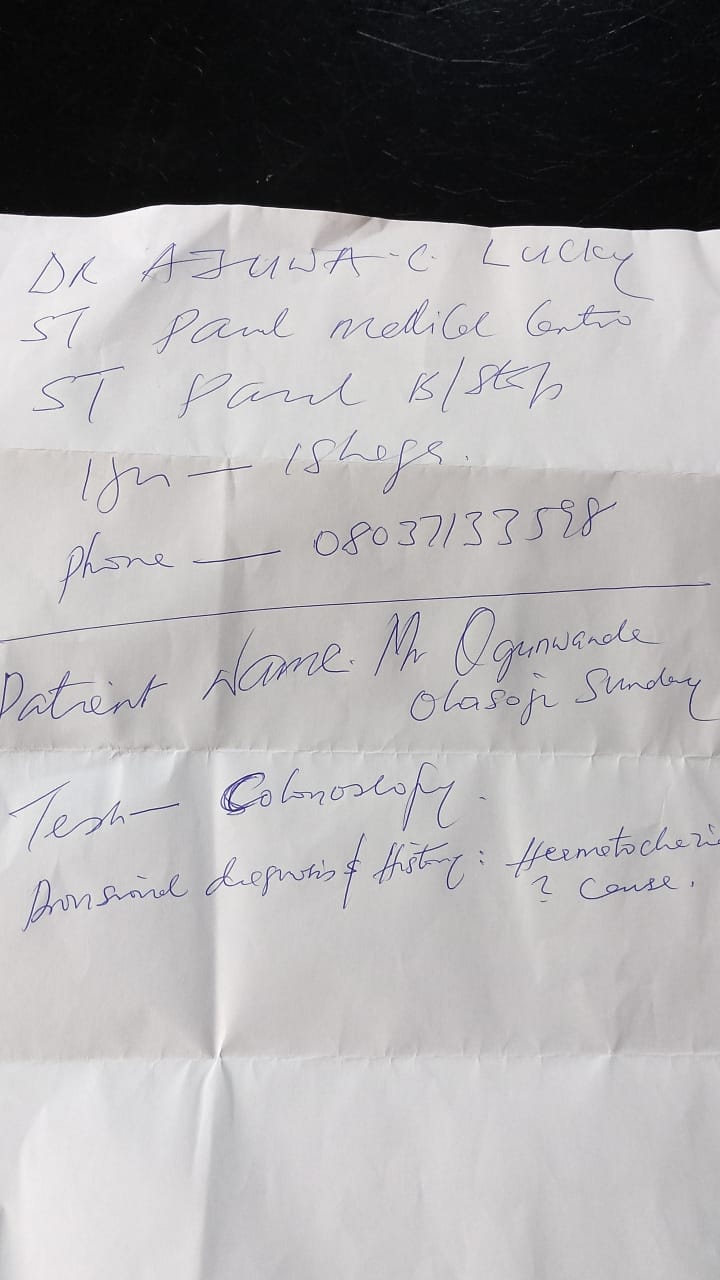 DR AJUWA C. Lucky
ST Paul medical Centre
ST Paul B/Stop
Iju — Ishaga.
phone — 08037133598
Patient Name. Mr Ogunwande
Olasoji Sunday
Test — Colonoscopy.
Provisional diagnosis & History: Heematochezia
? Cause.